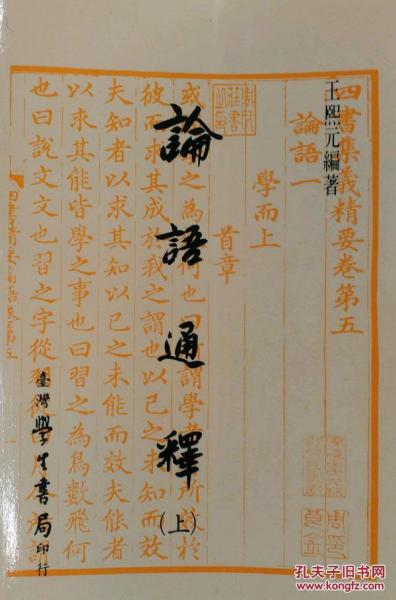 王熙元編著
論語通釋
(上)
臺灣學生書局印行
四書集義精要卷第五
論語一
學而上
首章
或
之為
何也曰
謂學者
所
於
彼而求其成於我之謂也以己之未知而效
夫知者以求其知以己之未能而效夫能者
以求其能皆學之事也曰習之為鳥數飛何
也曰說文文也習之字從
孔夫子旧书网
www.kongfz.com